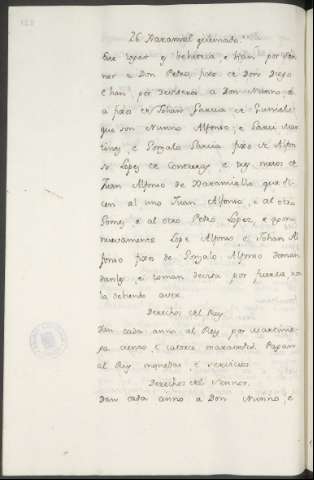 26 Naraniel quemado.
Este logar es behetria, e han por sen-
nor a Don Pedro, fijo de Don Diego
e han por deviseros a Don Nunno, e
a fijos de Johan Garcia de
que son Nunno Alfonso, e Garci Mar-
tinez, e Gonzalo Garcia fijo de Alfon-
so Lopez de Contreras e tres nietos de
Juan Alfonso de Naramiello, que di-
cen al uno Juan Alfonso, e al otro
Gomez e al otro Pedro Lopez, e agora
nuevamente Lope Alfonso e Johan Al
fonso fijos de Gonzalo Alfonso deman
danlos, e toman devisa por fuerza no
la debiendo aver.
Derechos del Rey.
Dan cada anno al Rey por martinie-
ga ciento e catorce maravedis. Pagan
al Rey monedas e servicios.
Derechos del Sennor.
Dan cada anno a Don Nunno, e